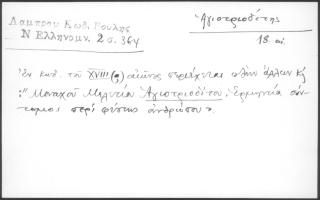 Λαμπρου Κωδ. Βουλης
Ν Ελληνομν. 2 σ. 364
Ἁγιοτριαδίτης
18 αἰ.
Ἐν κωδ. τοῦ XVIII (;) αἰῶνος περιέχεται πλὴν ἄλλων καὶ
:" Μοναχοῦ Μελετίου Ἁγιοτριαδίτου, Ἑρμηνεία σύν-
τομος περὶ φύσεως ἀνθρώπου".